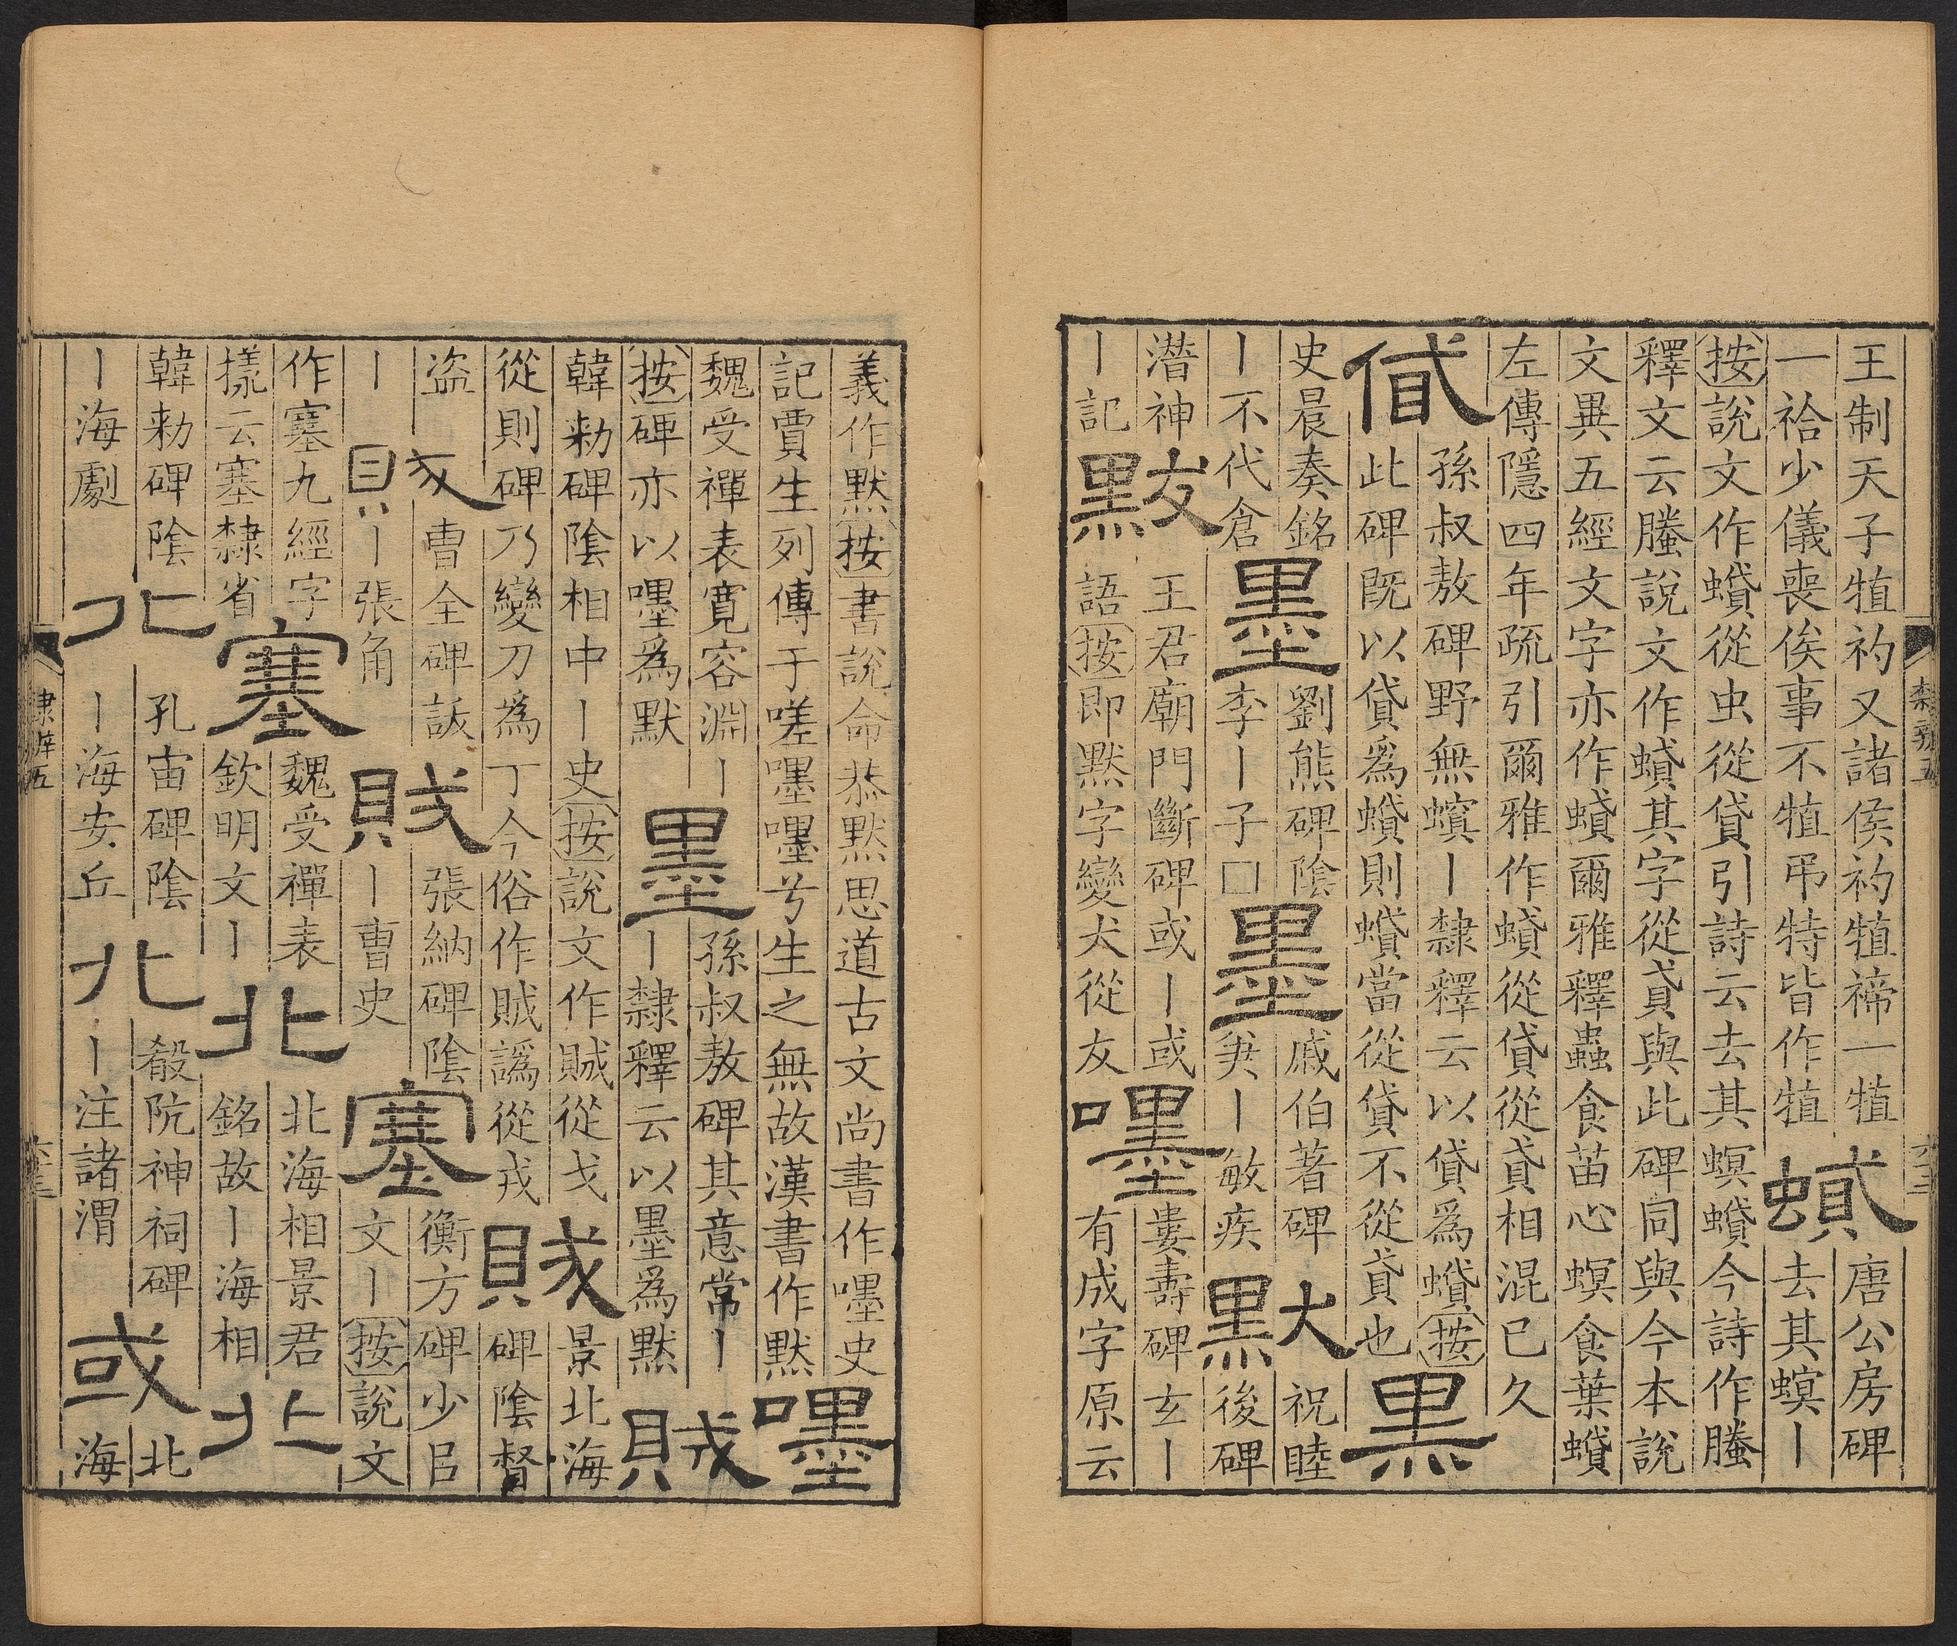 王制天子犆礿又諸侯礿犆禘一犆
一祫少儀喪俟事不犆弔特皆作犆
蟘
唐公房碑
去其螟〡
按說文作蟘從虫從貸引詩云去其螟蟘今詩作螣
釋文云螣說文作蟘其字從貣與此碑同與今本說
文異五經文字亦作蟘爾雅釋蟲食苗心螟食葉蟘
左傳隱四年疏引爾雅作蟘從貸從貣相混已久
貸
孫叔敖碑野無螟〡隸釋云以貸爲蟘按
此碑既以貸爲蟘則蟘當從貸不從貣也
黑
史晨奏銘
〡不代倉
墨
劉熊碑陰
李〡子□
墨
戚伯著碑
〡敏疾
默
祝睦
後碑
潛神
〡記
䵢
王君廟門斷碑或〡或
語按即默字變犬從友
嚜
婁壽碑玄〡
有成字原云
隸辨五
義作默按書說命恭默思道古文尚書作嚜史
記賈生列傳于嗟嚜嚜兮生之無故漢書作默
嚜
魏受禪表寬容淵〡
按碑亦以嚜爲默
墨
孫叔敖碑其意常〡
〡隸釋云以墨爲默
賊
韓勑碑陰相中〡史按說文作賊從戈
從則碑乃變刀爲丁今俗作賊譌從戎
賊
景北海
碑陰督
盜
〡
賊
曹全碑詃
〡張角
賊
張納碑陰
〡曹史
塞
衡方碑少㠯
文〡按說文
作塞九經字
㨾云塞隸省
塞
魏受禪表
欽明文〡
北
北海相景君
銘故〡海相
北
韓勑碑陰
〡海劇
北
孔宙碑陰
〡海安丘
北
殽阬神祠碑
〡注諸渭
或
北
海
隸辨五